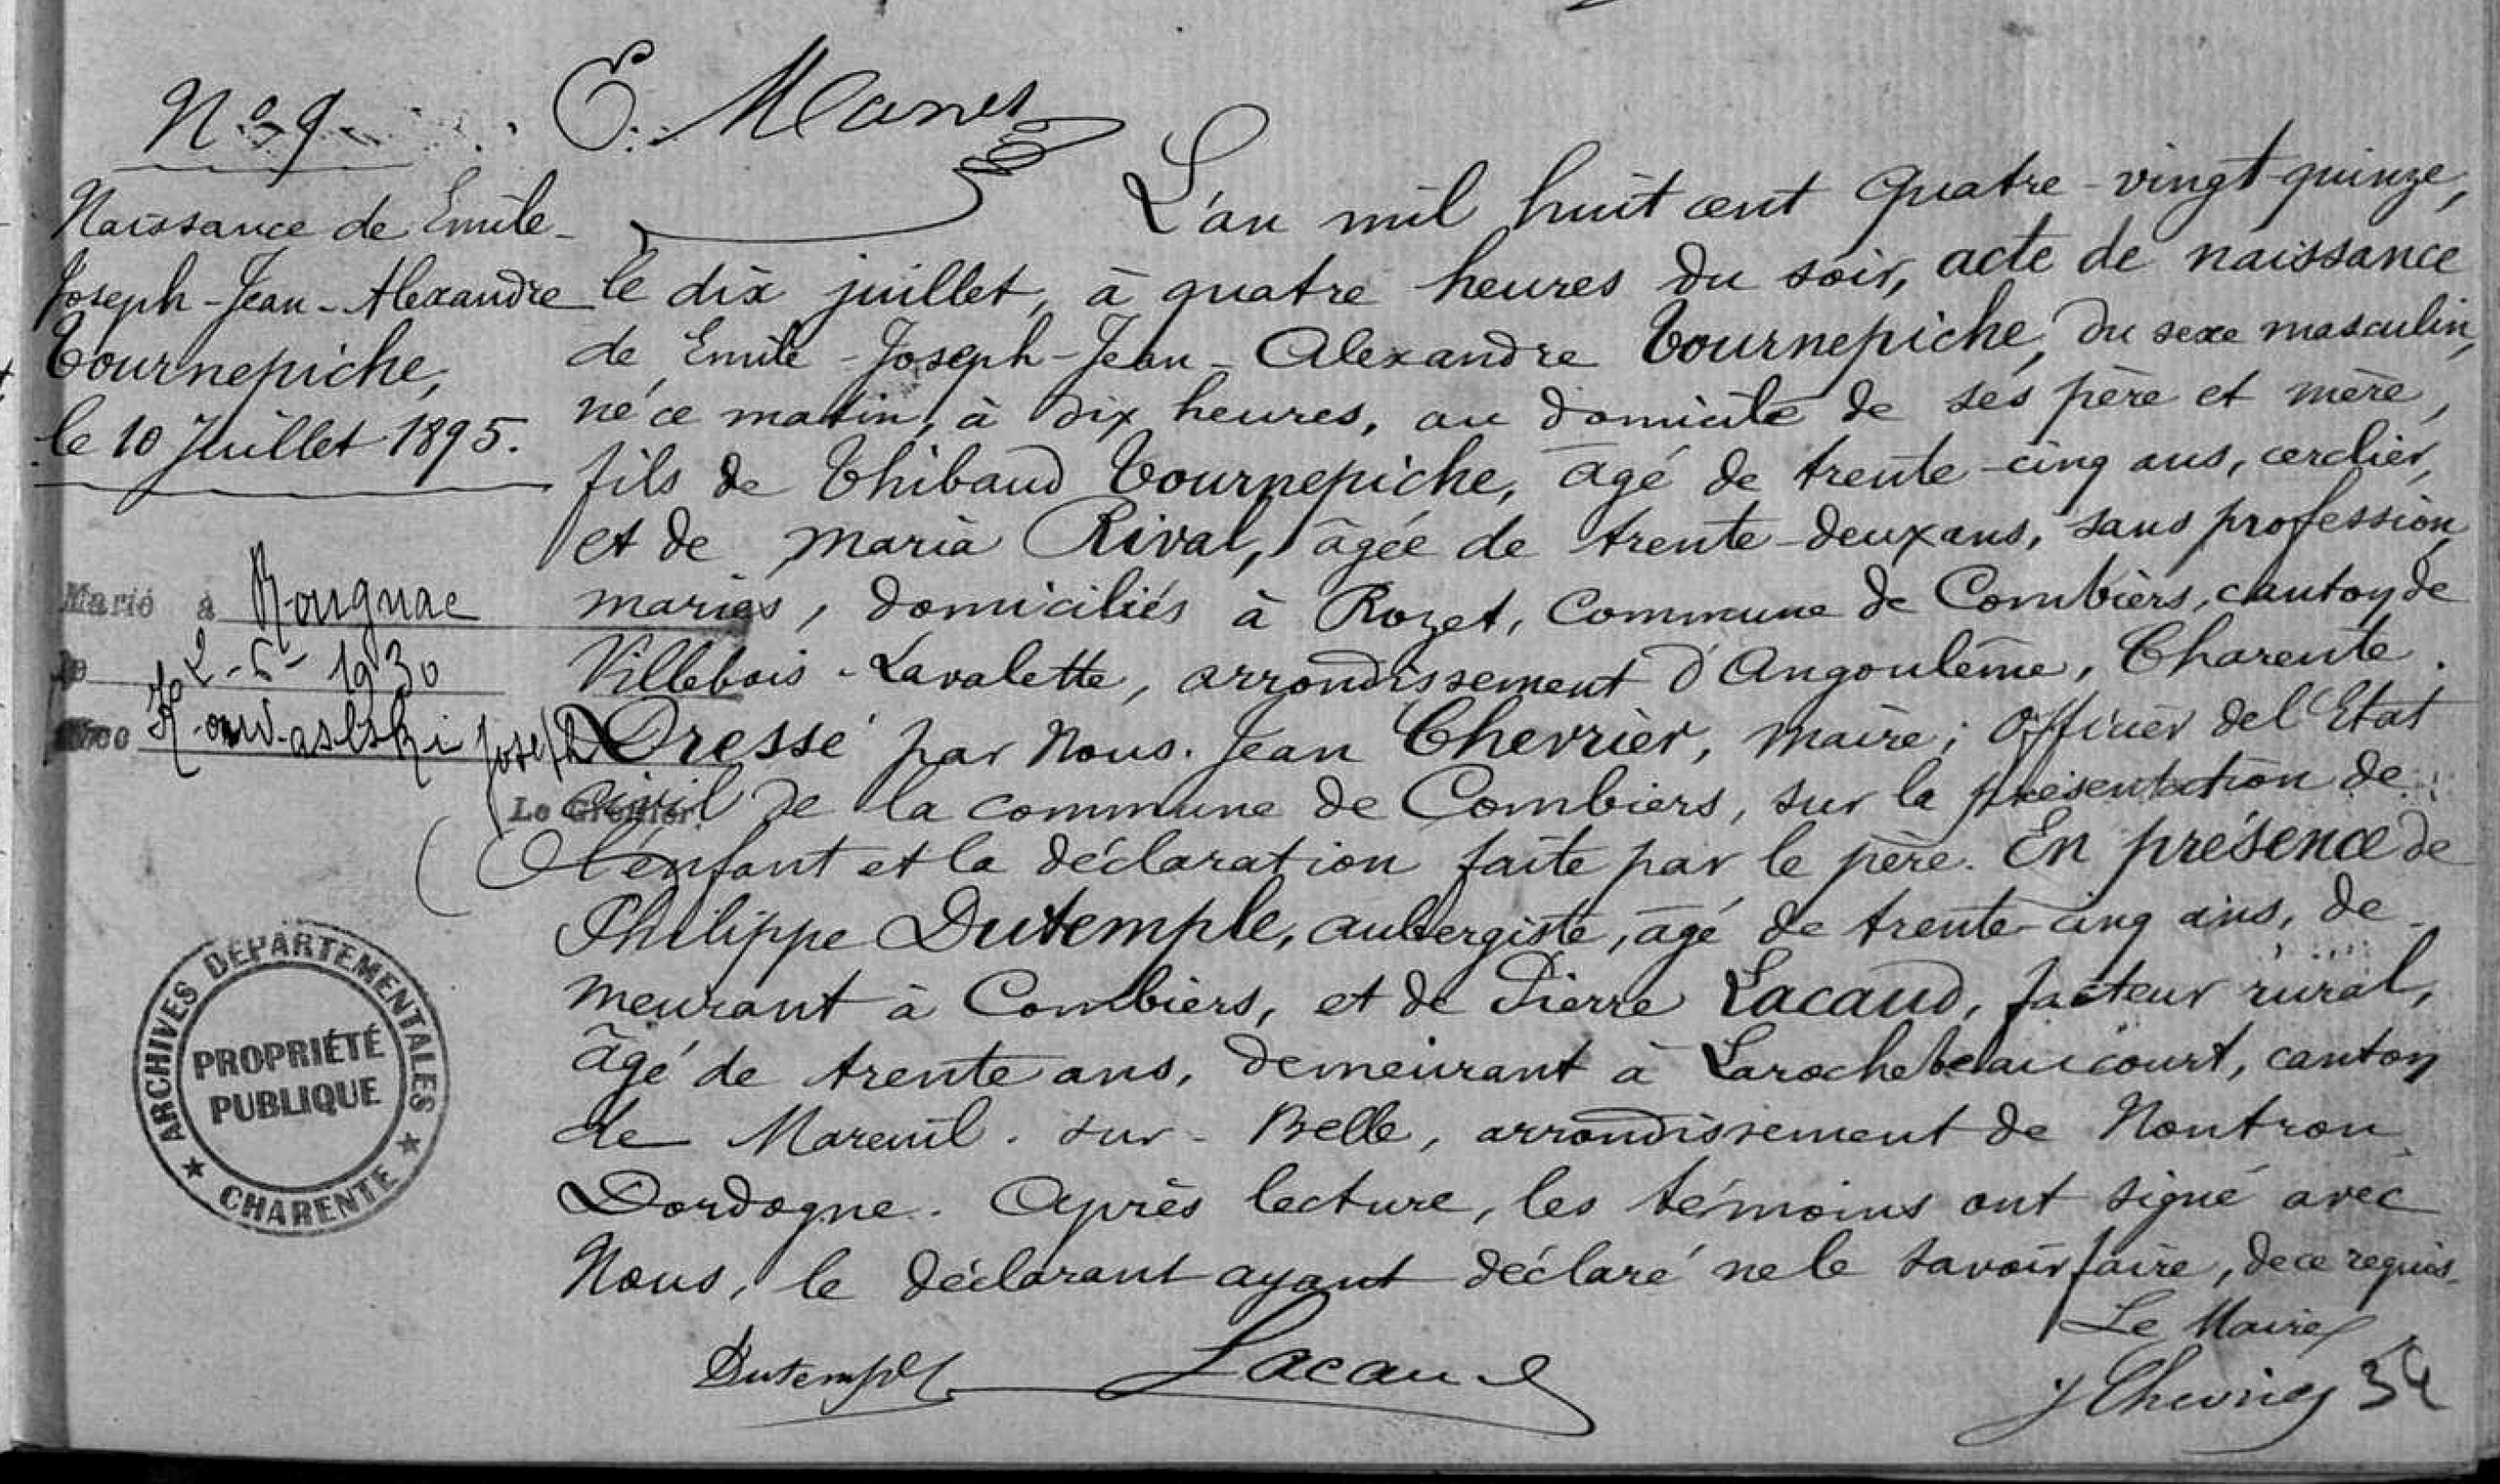 N° 39
E. Manet
Naissance de Emile-
Joseph-Jean-Alexandre
Tournepiche,
le 10 Juillet 1895.
Marié à Rougnac
le 2-6-1930
avec Kowaslski Joseph
Le Greffier.
ARCHIVES DÉPARTEMENTALES
PROPRIÉTÉ
PUBLIQUE
★ CHARENTE ★
L'an mil huit cent quatre-vingt-quinze,
le dix juillet, à quatre heures du soir, acte de naissance
de Emile-Joseph-Jean-Alexandre Tournepiche, du sexe masculin,
né ce matin, à dix heures, au domicile de ses père et mère,
fils de Thibaud Tournepiche, âgé de trente-cinq ans, cerclier,
et de Maria Rival, âgée de trente-deux ans, sans profession,
mariés, domiciliés à Rozet, Commune de Combiers, canton de
Villebois-Lavalette, arrondissement d'Angoulême, Charente.
Dressé par Nous. Jean Chevrier, maire; officier de l'Etat
civil de la commune de Combiers, sur la présentation de
l'enfant et la déclaration faite par le père. En présence de
Philippe Dutemple, aubergiste, âgé de trente-cinq ans, de-
meurant à Combiers, et de Pierre Lacaud, facteur rural,
âgé de trente ans, demeurant à Larochebeaucourt, canton
de Mareuil-sur-Belle, arrondissement de Nontron
Dordogne. Après lecture, les témoins ont signé avec
Nous, le déclarant ayant déclaré ne le savoir faire, de ce requis.
Le Maire
Dutemple Lacaud J Chevrier